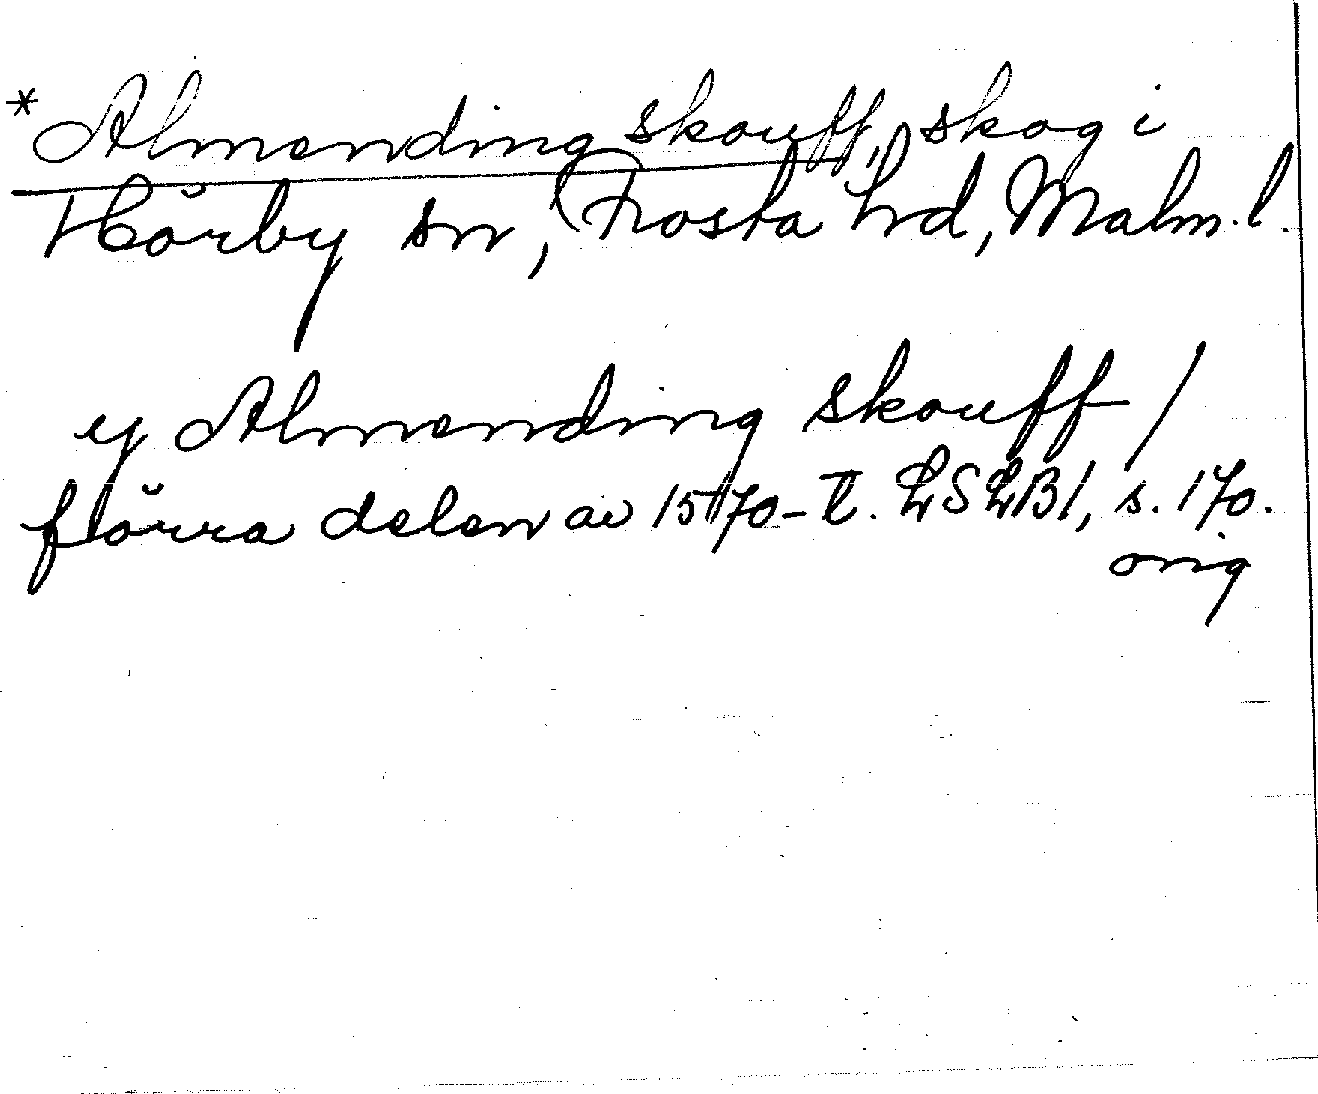 *Almending skouff, skog i
Hörby sn, Frosta hd, Malm. l.
ij Almending skouff /
förra delen av 1570-t. LSLB1, s. 170.
orig